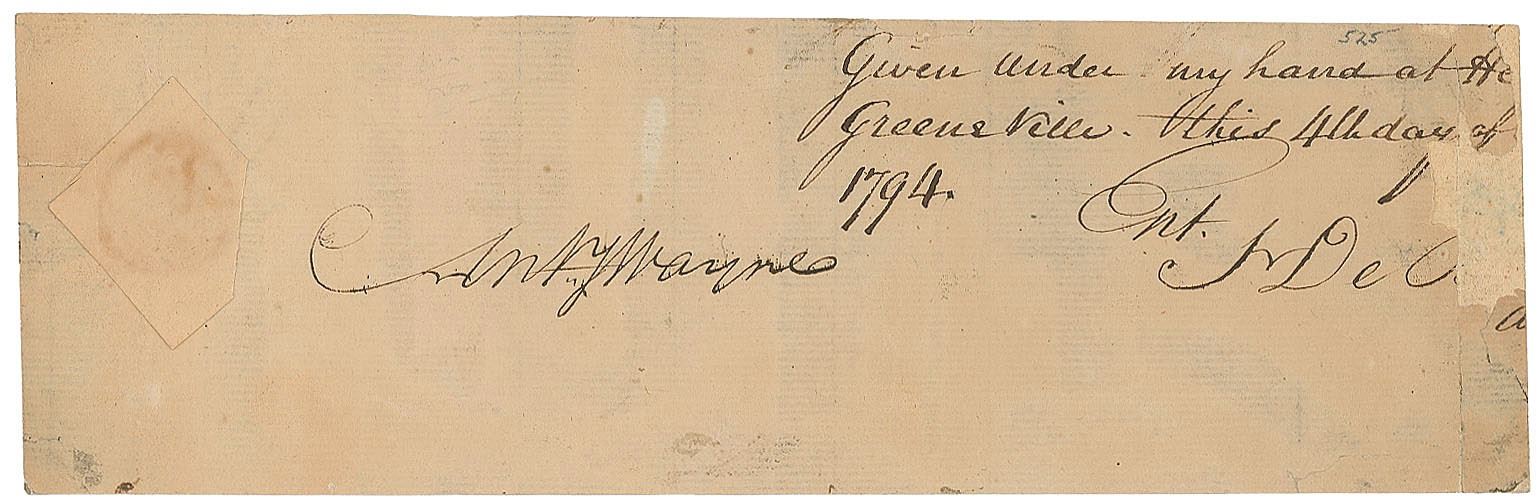 525
Given under my hand at He
Greene Ville. this 4th day of
1794.
Ant.y Wayne
Cpt.
De